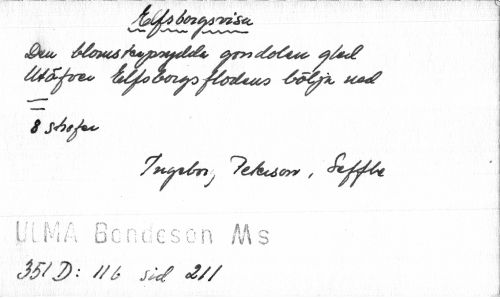 Elfsborgsvisa
Den blomsterprydda gondolen gled
Utöfver Elfsborgsflodens bölja ned
8 strofer
Ingeborg Peterson, Seffle
ULMA Bondeson Ms
351 D: 116 sid 211